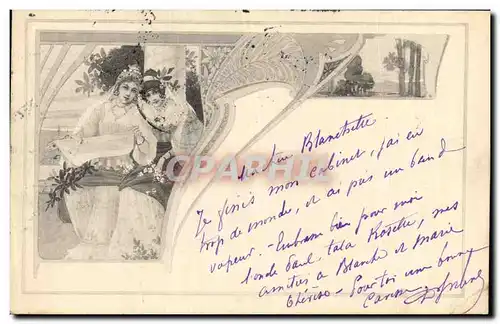 Ma chère Blanchette
Je finis mon cabinet, j'ai eu
trop de monde, et ai pris un band
vapeur. - Embrasse bien pour moi
l'oncle Paul, tata Rosette, mes
amitiés à Blanche et Marie
Thérèse - Pour toi une bonne
Caresse
CPARAMA